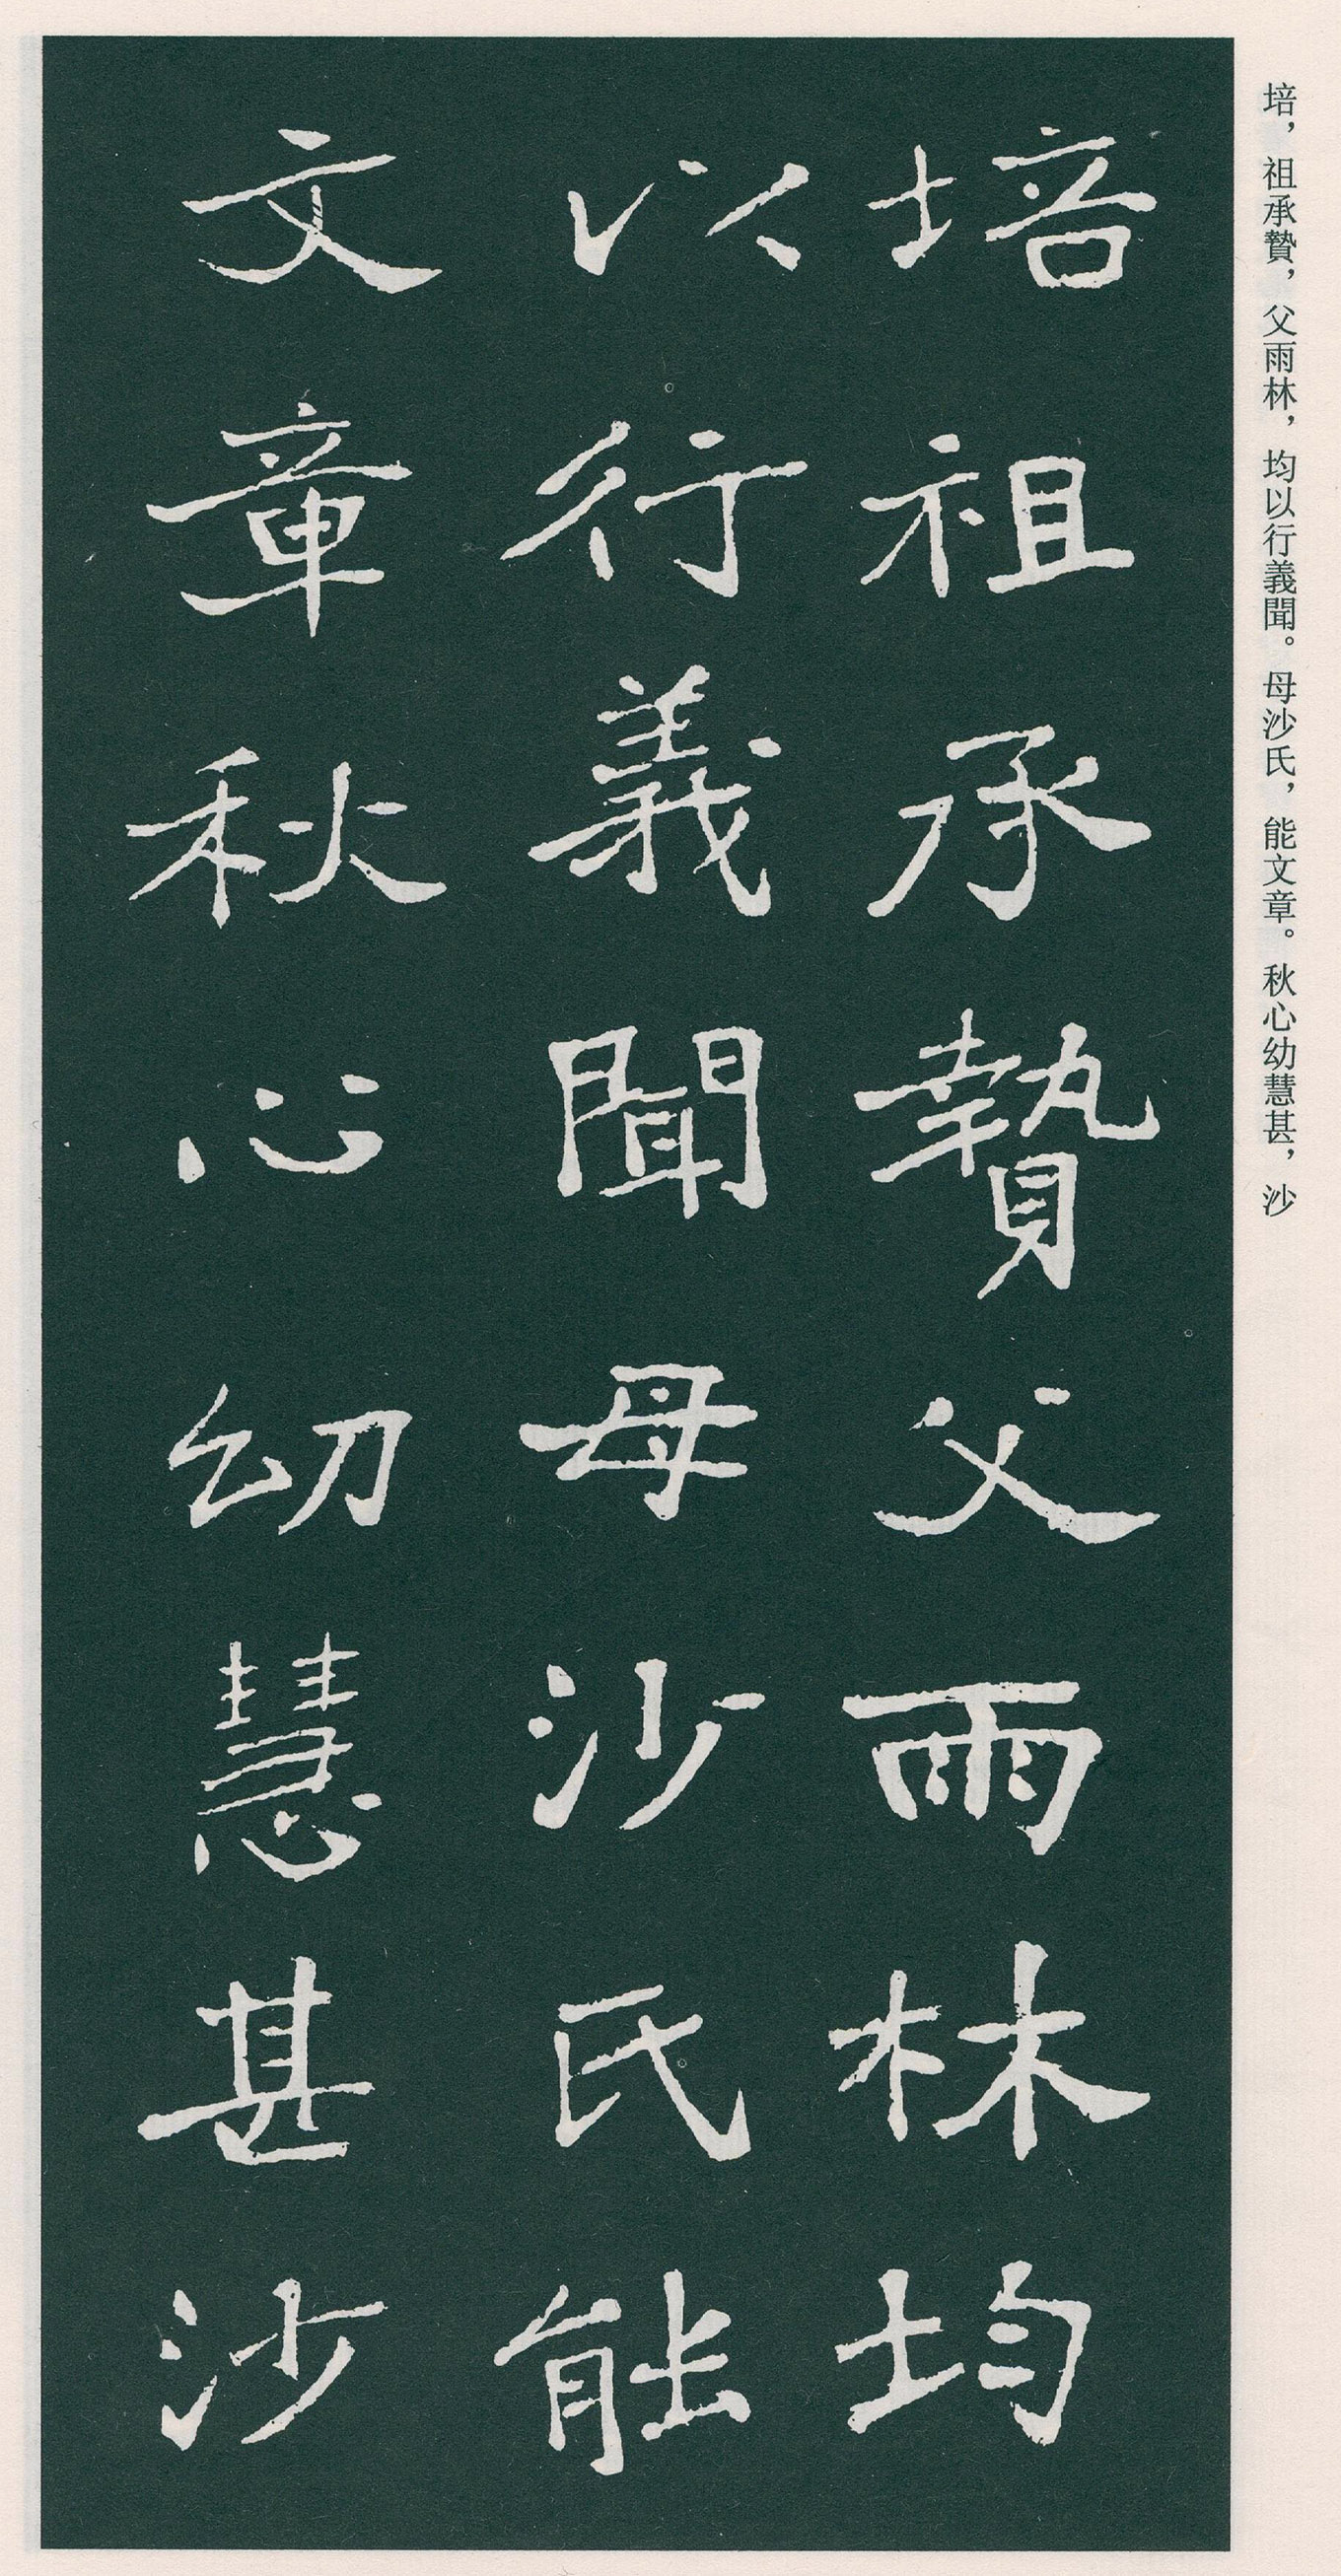 培，祖承贄，父雨林，均以行義聞。母沙氏，能文章。秋心幼慧甚，沙
培祖承贄父雨林均
以行義聞母沙氏能
文章秋心幼慧甚沙